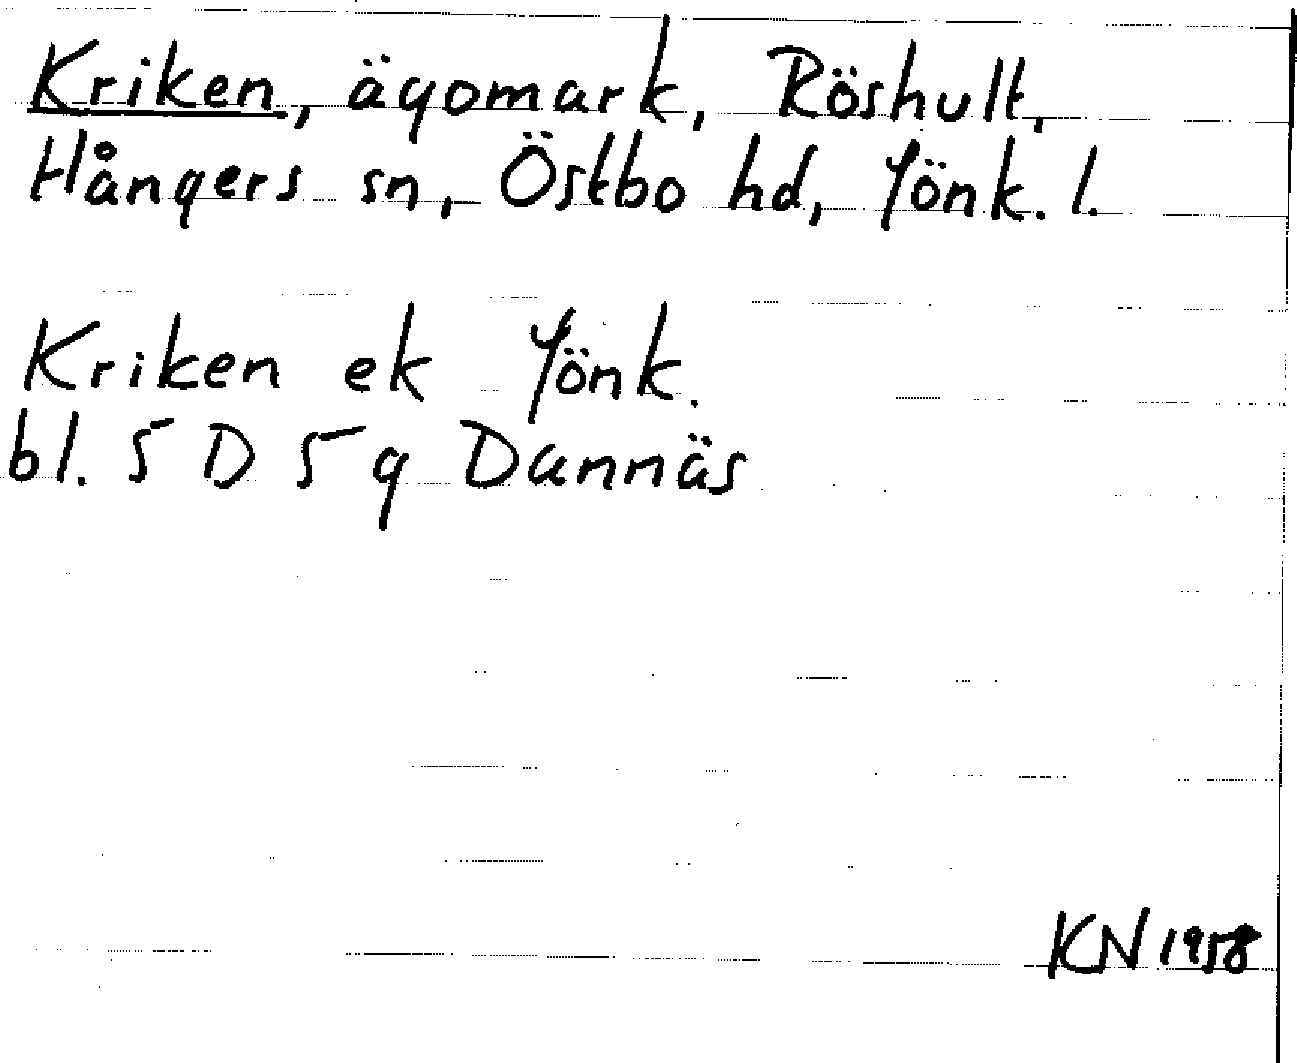 Kriken, ägomark, Röshult,
Hångers sn, Östbo hd, Jönk. l.
Kriken ek Jönk.
bl. 5 D 5 g Dannäs
KN 1958